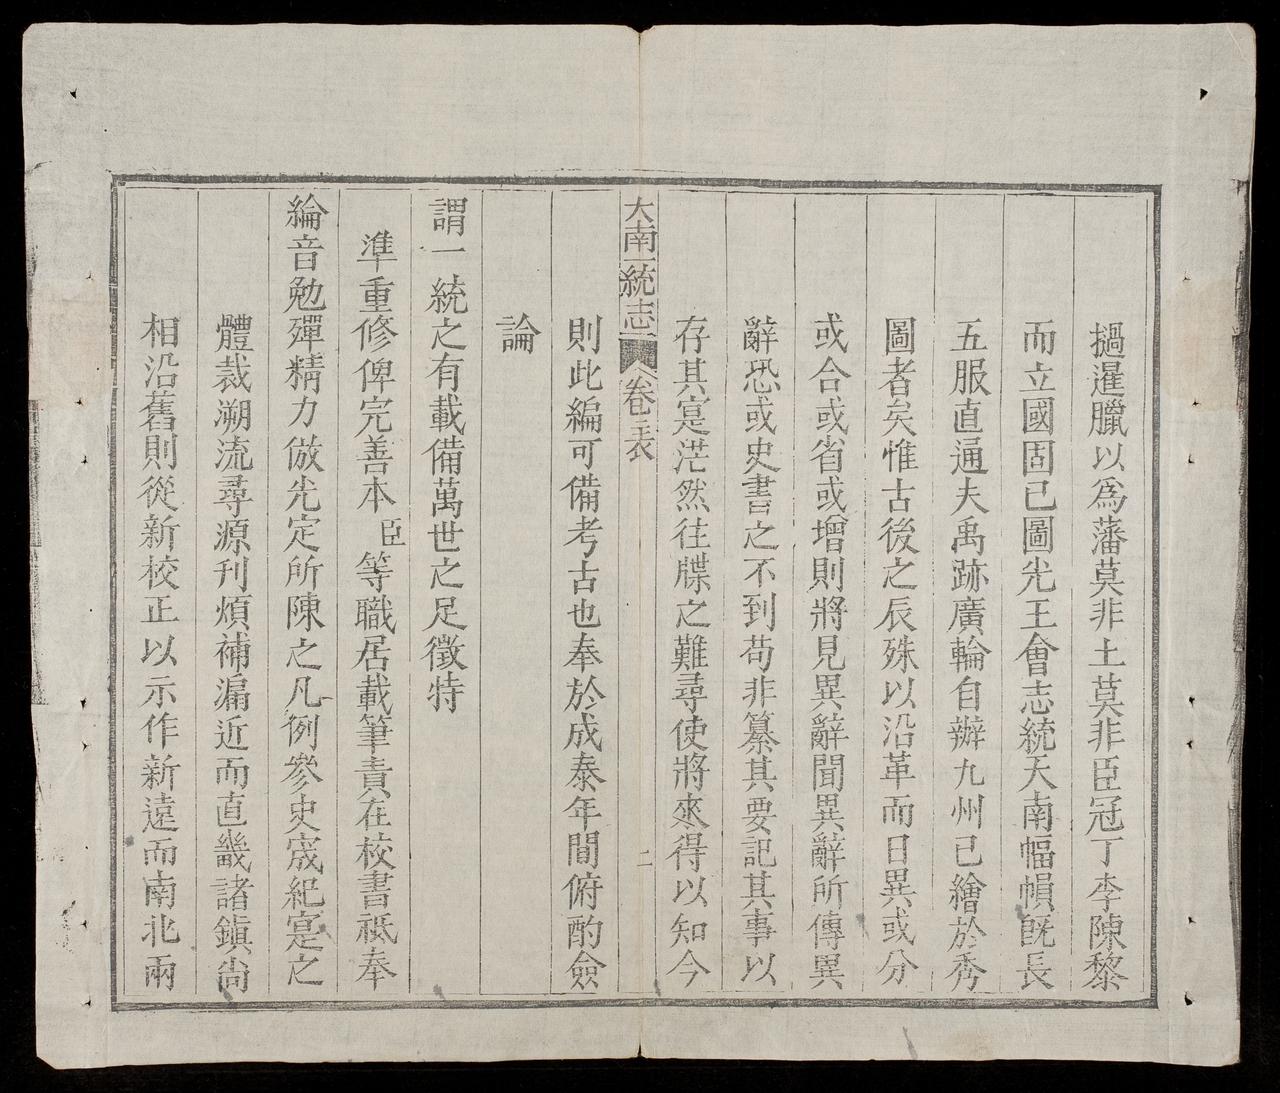 撾暹臘以爲藩莫非土莫非臣冠丁李陳黎
而立國固已圖光王會志統天南幅幀旣長
五服直通夫禹跡廣輪自辦九州已繪於秀
圖者矣惟古後之辰殊以沿革而日異或分
或合或省或增則將見異辭聞異辭所傳異
辭恐或史書之不到苟非纂其要記其事以
存其寔茫然往牒之難尋使將來得以知今
大南一統志 卷二表 二
則此編可備考古也奉於成泰年間俯酌僉
論
謂一統之有載備萬世之足徵特
準重修俾完善本臣等職居載筆責在校書祗奉
綸音勉殫精力倣光定所陳之凡例參史宬紀寔之
體裁溯流尋源刊煩補漏近而直畿諸鎭尙
相沿舊則從新校正以示作新遠而南北兩